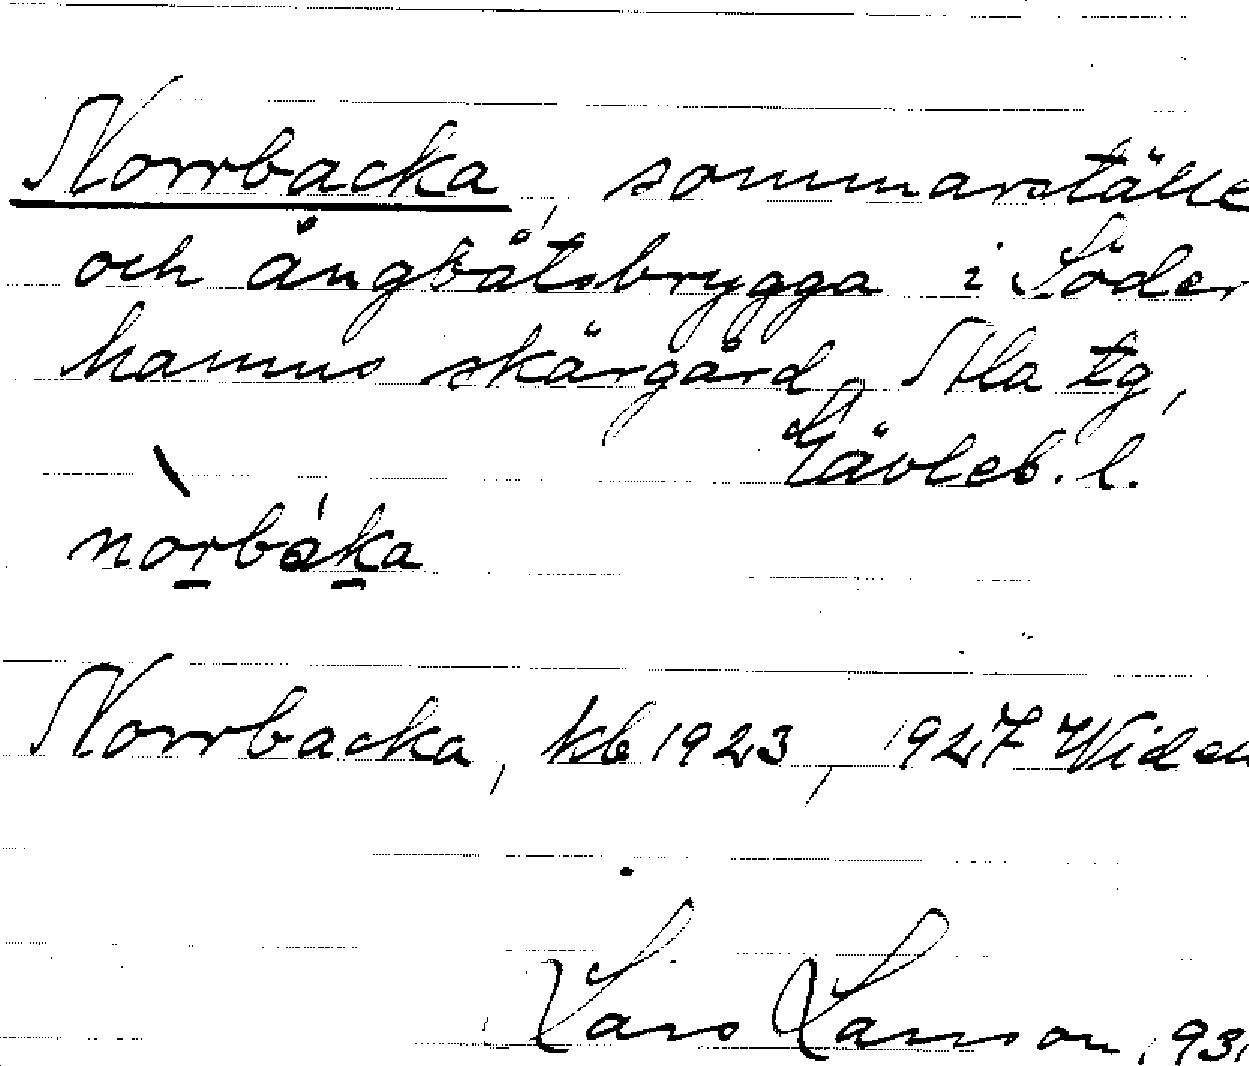 Norrbacka, sommarställe
och ångbåtsbrygga i Söder
hamns skärgård, Ala tg,
Gävleb. l.
nòrbáka
Norrbacka, kb 1923, 1927 Widen
Lars Larsson, 1931